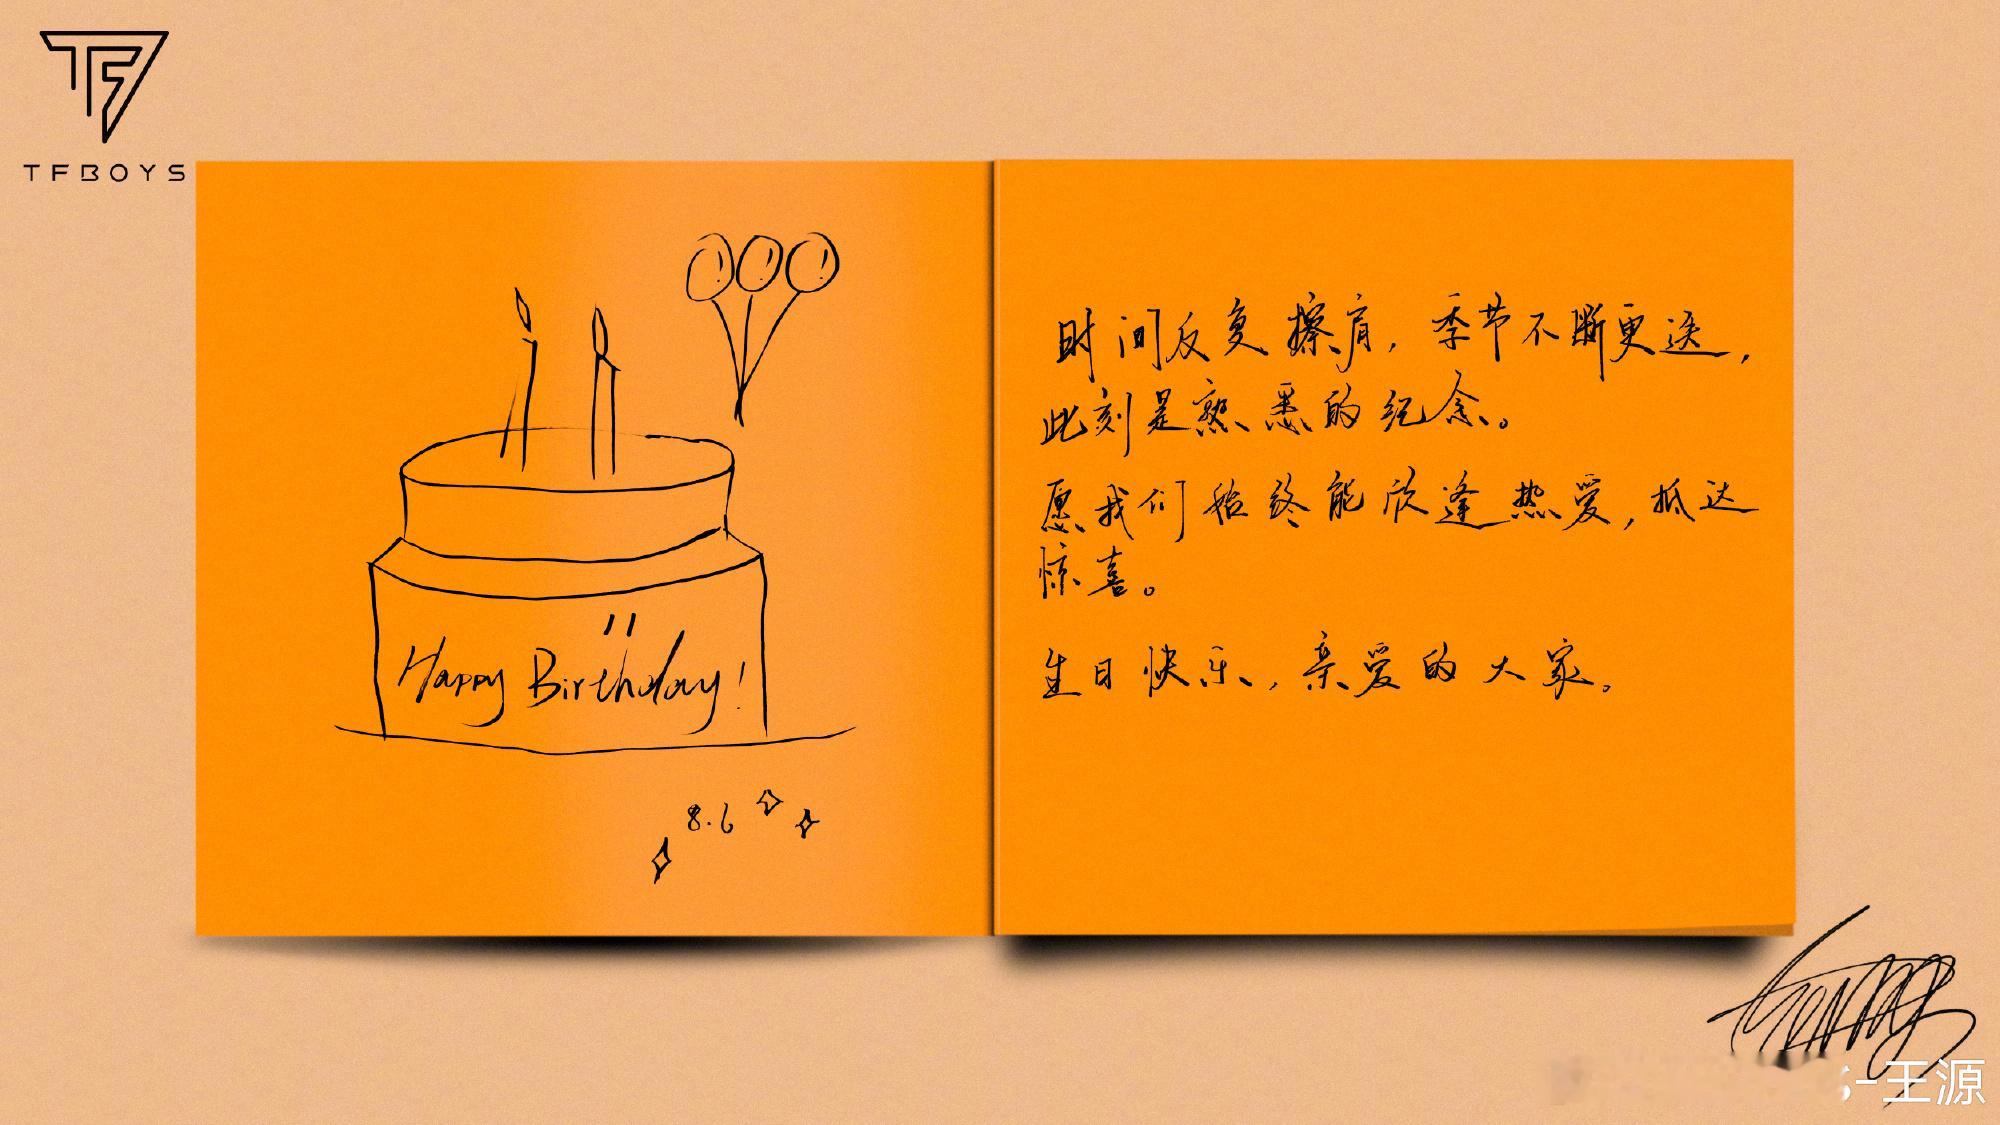 TFBOYS
Happy Birthday!
8.6
时间反复擦肩，季节不断更迭，
此刻是熟悉的纪念。
愿我们始终能欣逢热爱，抵达
惊喜。
生日快乐，亲爱的大家。
-王源